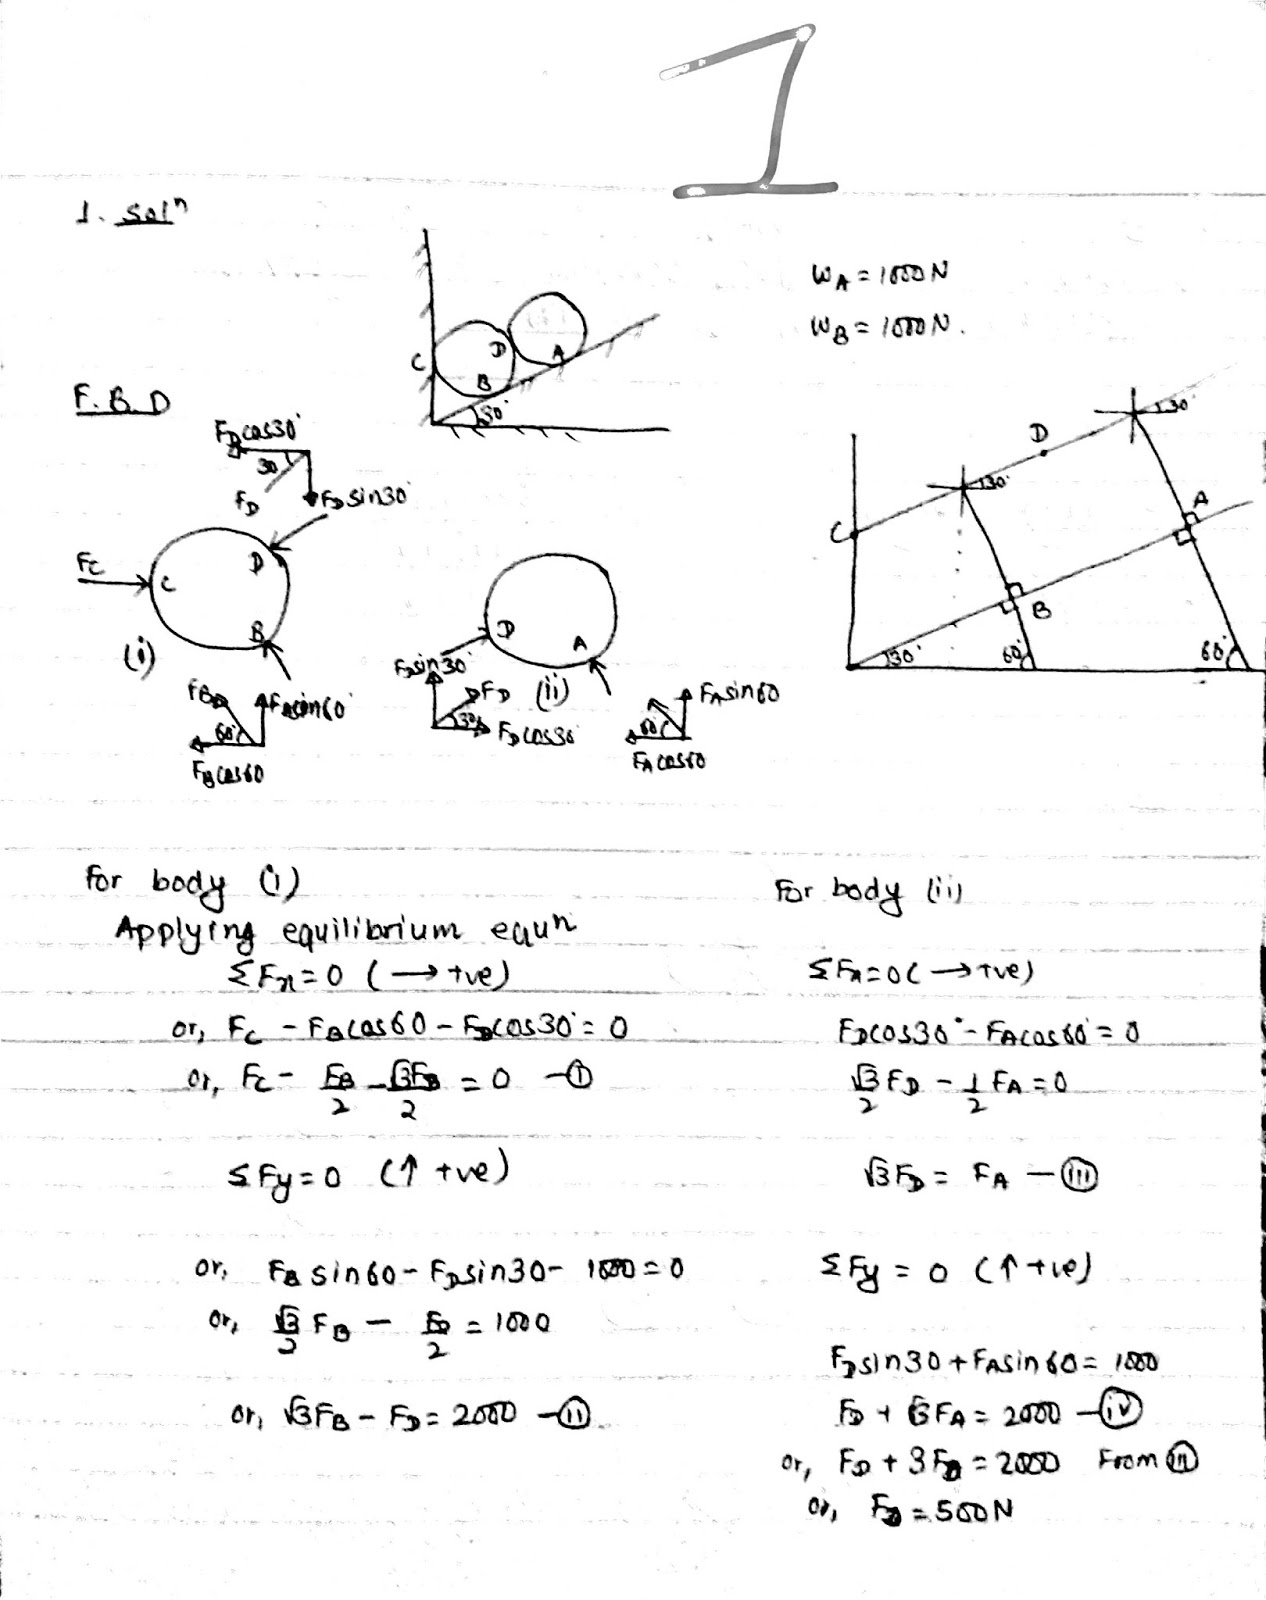 1
1. Solⁿ
W_A = 1000N
W_B = 1000N.
C
D
A
B
30°
F.B.D
F_D cos30°
30
F_D
F_D sin30°
F_C
C
D
B
(i)
F_B
F_A sin60
60°
F_B cos60
D
A
F_D sin30°
F_D
(ii)
30
F_D cos30
F_A sin60
60
F_A cos60
C
D
30°
30°
A
B
30°
60°
60°
For body (i)
Applying equilibrium equn
ΣFx = 0 (→ +ve)
or, F_C - F_B cos60 - F_D cos30° = 0
or, F_C - F_B/2 - √3F_B/2 = 0 -(i)
ΣFy = 0 (↑ +ve)
or, F_B sin60 - F_D sin30 - 1000 = 0
or, √3/2 F_B - F_D/2 = 1000
or, √3F_B - F_D = 2000 -(ii)
For body (ii)
ΣFx = 0 (→ +ve)
F_D cos30° - F_A cos60° = 0
√3/2 F_D - 1/2 F_A = 0
√3F_D = F_A -(iii)
ΣFy = 0 (↑ +ve)
F_D sin30 + F_A sin60 = 1000
F_D + √3F_A = 2000 -(iv)
or, F_D + 3F_D = 2000 From (iii)
or, F_D = 500N